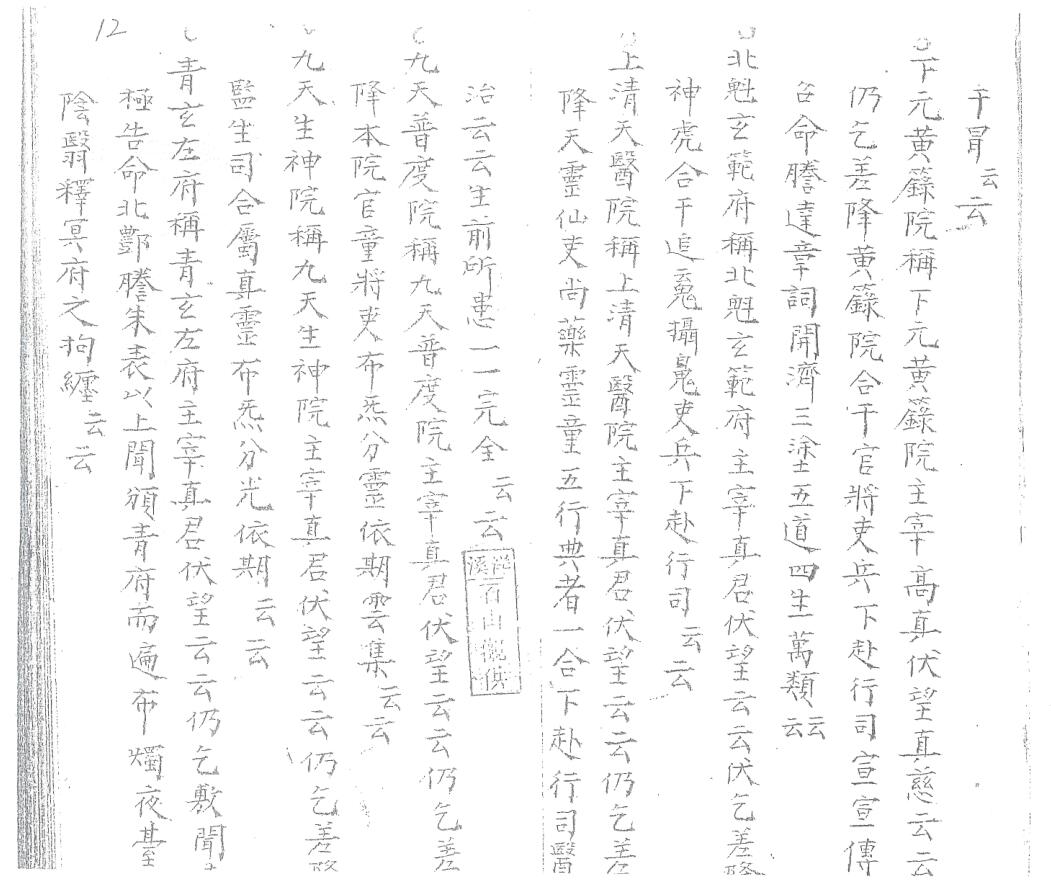 干冒云云
下元黄籙院稱下元黄籙院主宰高真伏望真慈云云
仍乞差降黄籙院合干官將吏兵下赴行司宣宣傳
召命謄達章詞開濟三塗五道四生萬類云云
北魁玄範府稱北魁玄範府主宰真君伏望云云伏乞差降
神虎合干追魂攝魄吏兵下赴行司云云
上清天醫院稱上清天醫院主宰真君伏望云云仍乞差
降天靈仙吏尚藥靈童五行典者一合下赴行司醫
治云云生前所患一一完全云云
石山
九天普度院稱九天普度院主宰真君伏望云云仍乞差
降本院官童將吏布炁分靈依期雲集云云
九天生神院稱九天生神院主宰真君伏望云云仍乞差降
監生司合屬真靈布炁分光依期云云
青玄左府稱青玄左府主宰真君伏望云云仍乞敷聞
極告命北酆謄朱表以上聞頒青府而遍布燭夜臺
陰翳釋冥府之拘纏云云
12